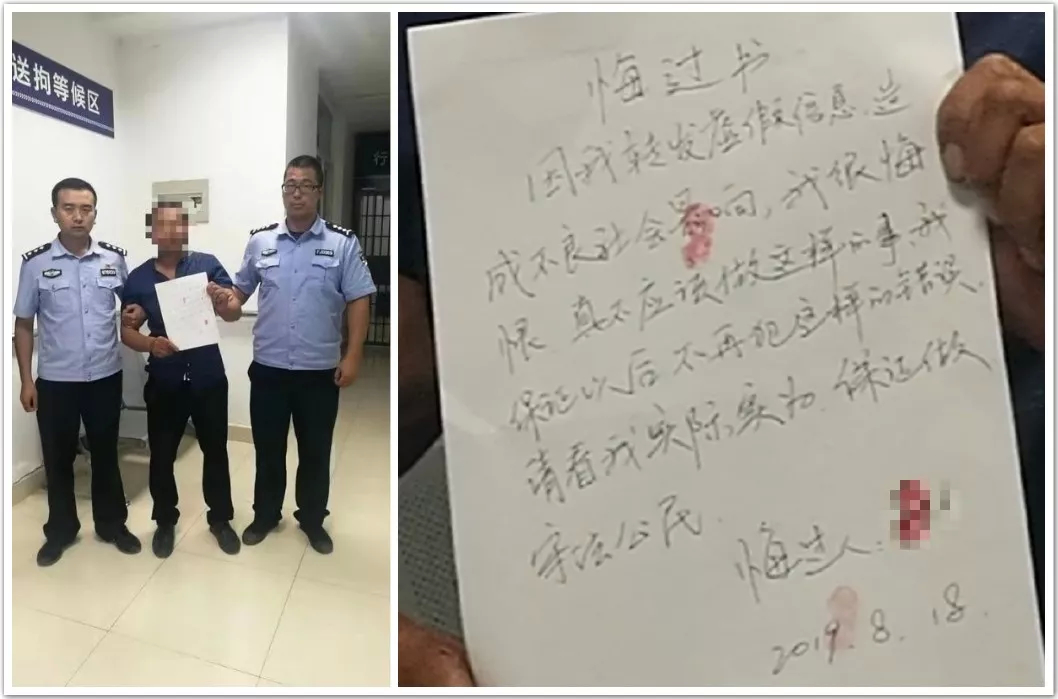 送拘等候区
行
悔过书
因我转发虚假信息造
成不良社会影响，我很悔
恨，真不应该做这样的事，我
保证以后不再犯这样的错误.
请看我实际实为.保证做
守法公民.
悔过人:
2019.8.18.